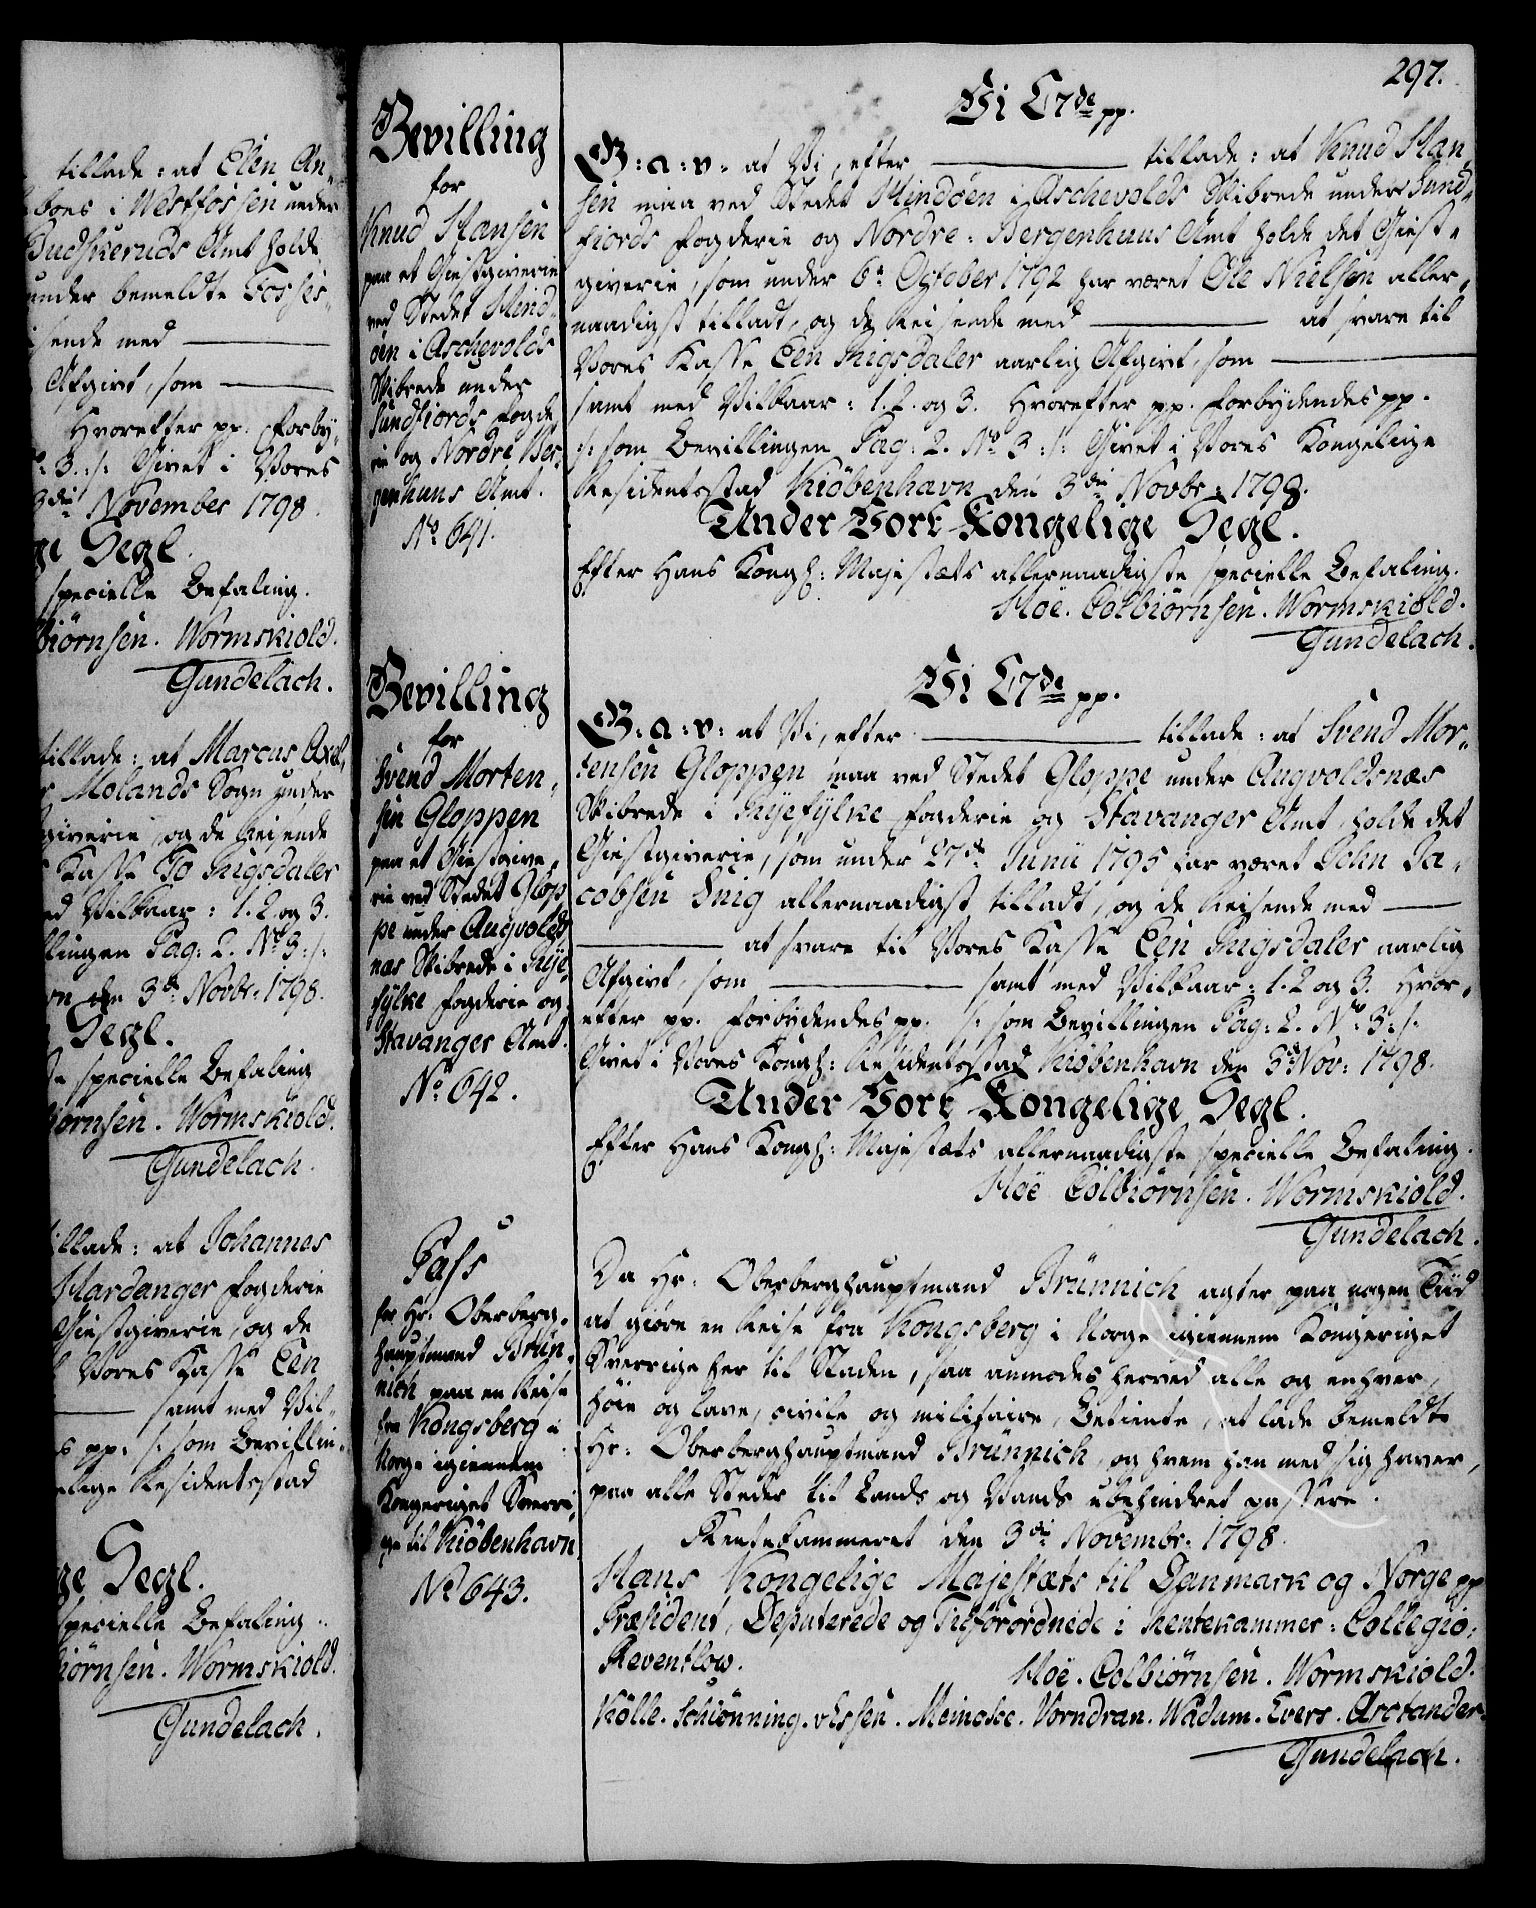 tillade: at Elen An-
boes i Westfossen under
Budskeruds Amt holde
under bemeldte Fosses-
isende med
Afgivt, som
Hvorefter pp. Forby-
3. :/: Givet i Vores
3die November 1798.
ge Segl.
specielle Befaling.
biörnsen. Wormskiold.
Gundelach.
tillade: at Marcus Axel-
Molands Sogn under
giverie, og de Reisende
Kasse To Rigsdaler
ed Vilkaar: 1. 2. og 3.
llingen Pag: 2. No 3 :/:
vn den 3de Novbr: 1798.
Segl.
specielle Befaling
biörnsen. Wormskiold.
Gundelach.
illade: at Johannes
Hardanger Fogderie
Giestgiverie, og de
Vores Kasse Een
samt med Vil-
pp. /: som Bevillin-
elige Residentsstad
ge Segl.
specielle Befaling.
iörnsen. Wormskiold.
Gundelach.
Bevilling
for
Knud Hansen
paa et Giestgiverie
ved Stedet Hind-
öen i Aschevolds
Skibrede under
Sundfiords Fogde-
rie og Nordre Ber-
genhuus Amt.
No 641.
Bevilling
for
Svend Morten-
sen Gloppen
paa et Giestgive-
rie ved Stedet Glop-
pe under Augvolds-
næs Skibrede i Rye-
fylke Fogderie og
Stavanger Amt.
No 642.
Pass
for Hr: Oberberg-
hauptmand Brün-
nich paa en Reise
fra Kongsberg i
Norge igiennem
Kongeriget Sverri-
ge til Kiöbenhavn
No 643.
297.
Vi C7de pp.
G: a: v: at Vi, efter tillade: at Knud Han-
sen maa ved Stedet Hindöen i Aschevolds Skibrede under Sund-
fiords Fogderie og Nordre-Bergenhuus Amt holde det Giest-
giverie, som under 6te October 1792 har været Ole Nielsen aller-
naadigst tilladt, og de Reisende med at svare til
Vores Kasse Een Rigsdaler aarlig Afgivt, som
samt med Vilkaar: 1. 2. og 3. Hvorefter pp. Forbydendes pp.
/: som Bevillingen Pag: 2. No 3 :/: Givet i Vores Kongelige
Residentsstad Kiöbenhavn den 3die Novbr: 1798.
Under Vort Kongelige Segl.
Efter Hans Kongl: Majestæts allernaadigste specielle Befaling.
Hoë. Colbiörnsen. Wormskiold.
Gundelach.
Vi C7de pp.
G: a: v: at Vi, efter tillade: at Svend Mor-
tensen Gloppen maa ved Stedet Gloppe under Augvoldsnæs
Skibrede i Ryefylke Fogderie og Stavanger Amt, holde det
Giestgiverie, som under 27de Junii 1795 har været John Ja-
cobsen Snig allernaadigst tilladt, og de Reisende med
at svare til Vores Kasse Een Rigsdaler aarlig
Afgivt, som samt med Vilkaar: 1. 2 og 3. Hvor-
efter pp. Forbydendes pp. /: som Bevillingen Pag: 2. No 3 :/:
Givet i Vores Kongl: Residentsstad Kiöbenhavn den 3de Nov: 1798.
Under Vort Kongelige Segl.
Efter Hans Kongl: Majestæts allernaadigste specielle Befaling.
Hoë Colbiörnsen. Wormskiold.
Gundelach.
Da Hr: Oberberghauptmand Brünnich agter paa nogen Tiid
at giöre en Reise fra Kongsberg i Norge igiennem Kongeriget
Sverrige her til Staden, saa anmodes herved alle og enhver,
höie og lave, civile og militaire, Betiente, at lade bemeldte
Hr: Oberberghauptmand Brünnich, og hvem han med sig haver,
paa alle Steder til Lands og Vands ubehindret passere.
Rentekammeret den 3die Novembr: 1798.
Hans Kongelige Majestæts til Danmark og Norge pp
Præsident, Deputerede og Tilforordnede i Rentekammer-Collegio.
Reventlow. Hoë. Colbiörnsen. Wormskiold.
Kölle. Schiönning. v Essen. Meincke. Vorndran. Wadum. Evers. Arctander.
Gundelach.